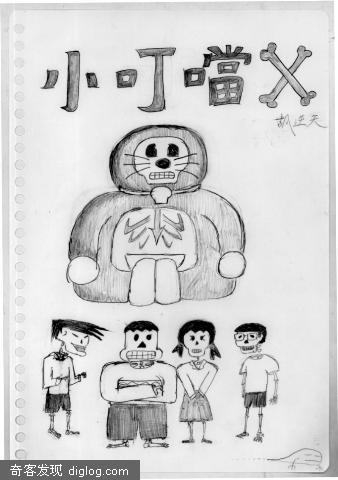 小叮噹X
奇客发现 diglog.com